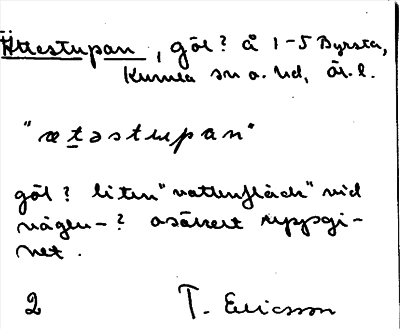 Ättestupan, göl? å 1-5 Byrsta,
Kumla sn o. hd, Är. l.
"ætəstupan"
göl? liten "vattenfläck" vid
vägen-? osäkert uppgi-
vet.
2 T. Ericsson